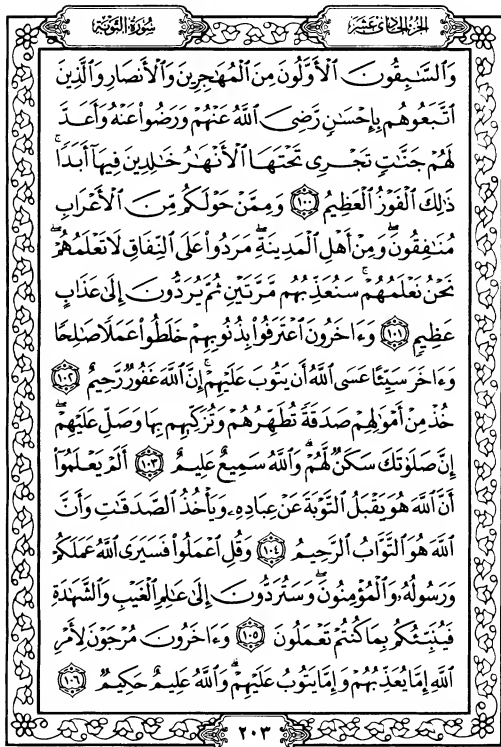 الجزء الحادي عشر
سورة التوبة
وَالسَّٰبِقُونَ الْأَوَّلُونَ مِنَ الْمُهَٰجِرِينَ وَالْأَنصَارِ وَالَّذِينَ
اتَّبَعُوهُم بِإِحْسَٰنٍ رَّضِيَ اللَّهُ عَنْهُمْ وَرَضُوا عَنْهُ وَأَعَدَّ
لَهُمْ جَنَّٰتٍ تَجْرِي تَحْتَهَا الْأَنْهَٰرُ خَٰلِدِينَ فِيهَا أَبَدًا ۚ
ذَٰلِكَ الْفَوْزُ الْعَظِيمُ ١٠٠ وَمِمَّنْ حَوْلَكُم مِّنَ الْأَعْرَابِ
مُنَٰفِقُونَ ۖ وَمِنْ أَهْلِ الْمَدِينَةِ ۖ مَرَدُوا عَلَى النِّفَاقِ لَا تَعْلَمُهُمْ ۖ
نَحْنُ نَعْلَمُهُمْ ۚ سَنُعَذِّبُهُم مَّرَّتَيْنِ ثُمَّ يُرَدُّونَ إِلَىٰ عَذَابٍ
عَظِيمٍ ١٠١ وَءَاخَرُونَ اعْتَرَفُوا بِذُنُوبِهِمْ خَلَطُوا عَمَلًا صَٰلِحًا
وَءَاخَرَ سَيِّئًا عَسَى اللَّهُ أَن يَتُوبَ عَلَيْهِمْ ۚ إِنَّ اللَّهَ غَفُورٌ رَّحِيمٌ ١٠٢
خُذْ مِنْ أَمْوَٰلِهِمْ صَدَقَةً تُطَهِّرُهُمْ وَتُزَكِّيهِم بِهَا وَصَلِّ عَلَيْهِمْ ۖ
إِنَّ صَلَوٰتَكَ سَكَنٌ لَّهُمْ ۗ وَاللَّهُ سَمِيعٌ عَلِيمٌ ١٠٣ أَلَمْ يَعْلَمُوا
أَنَّ اللَّهَ هُوَ يَقْبَلُ التَّوْبَةَ عَنْ عِبَادِهِۦ وَيَأْخُذُ الصَّدَقَٰتِ وَأَنَّ
اللَّهَ هُوَ التَّوَّابُ الرَّحِيمُ ١٠٤ وَقُلِ اعْمَلُوا فَسَيَرَى اللَّهُ عَمَلَكُمْ
وَرَسُولُهُۥ وَالْمُؤْمِنُونَ ۖ وَسَتُرَدُّونَ إِلَىٰ عَٰلِمِ الْغَيْبِ وَالشَّهَٰدَةِ
فَيُنَبِّئُكُم بِمَا كُنتُمْ تَعْمَلُونَ ١٠٥ وَءَاخَرُونَ مُرْجَوْنَ لِأَمْرِ
اللَّهِ إِمَّا يُعَذِّبُهُمْ وَإِمَّا يَتُوبُ عَلَيْهِمْ ۗ وَاللَّهُ عَلِيمٌ حَكِيمٌ ١٠٦
٢٠٣